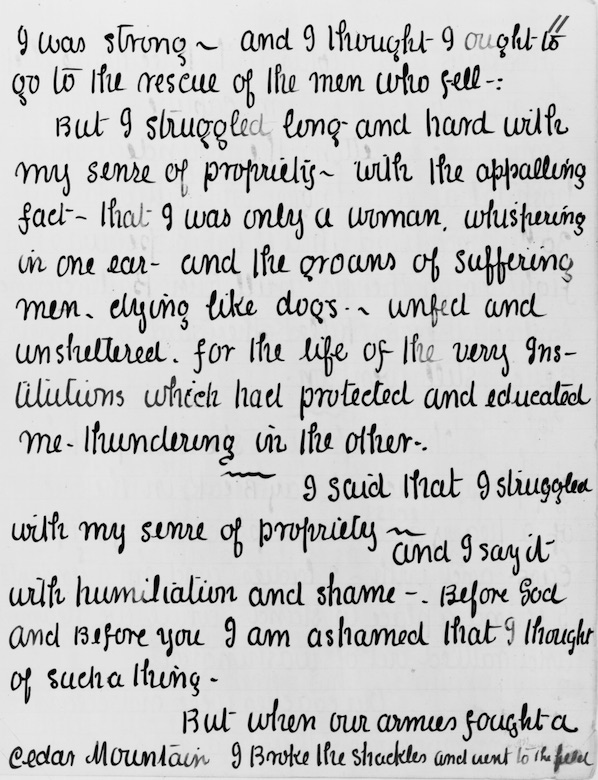 I was strong ~ and I thought I ought to
go to the rescue of the men who fell -:
But I struggled long and hard with
my sense of propriety ~ with the appalling
fact - that I was only a woman, whispering
in one ear - and the groans of suffering
men. dying like dogs - ~ unfed and
unsheltered. for the life of the very Ins-
titutions which had protected and educated
me - thundering in the other -.
I said that I struggled
with my sense of propriety ~
and I say it
with humiliation and shame -. Before God
and Before you I am ashamed that I thought
of such a thing -
But when our armies fought a
Cedar Mountain I Broke the shackles and went to the field